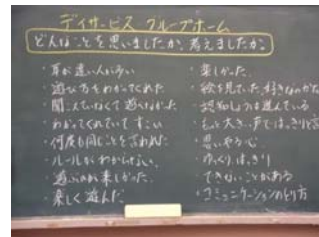 デイサービス グループホーム
どんなことを思いましたか、考えましたか。
・耳が遠い人が多い
・遊び方をわかってくれた
・聞こえていなくて遊べなかった
・わかってくれていてすごい
・何度も同じことを言われた
・ルールがわからない
・遊ぶのが楽しかった
・楽しく遊んだ
・楽しかった
・絵を見ていた、好きなのかな
・認知しょうは進んでいる
・もっと大きい声ではっきり言う
・思いやる心
・ゆっくりはっきり
・できないことがある
・コミュニケーションのとり方